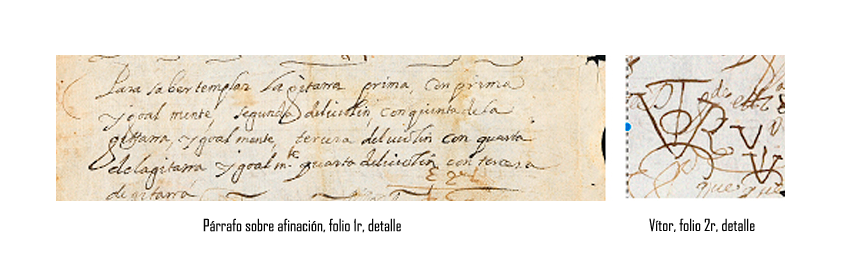 Para saber templar la gitarra prima, con prima
ygoal mente, segunda del violin, con quinta de la
gittarra, ygoal mente, tercera del violin con quarta
de la gitarra ygoal mte. quarta del violin con tercera
de gitarra
Párrafo sobre afinación, folio 1r, detalle
Vítor, folio 2r, detalle